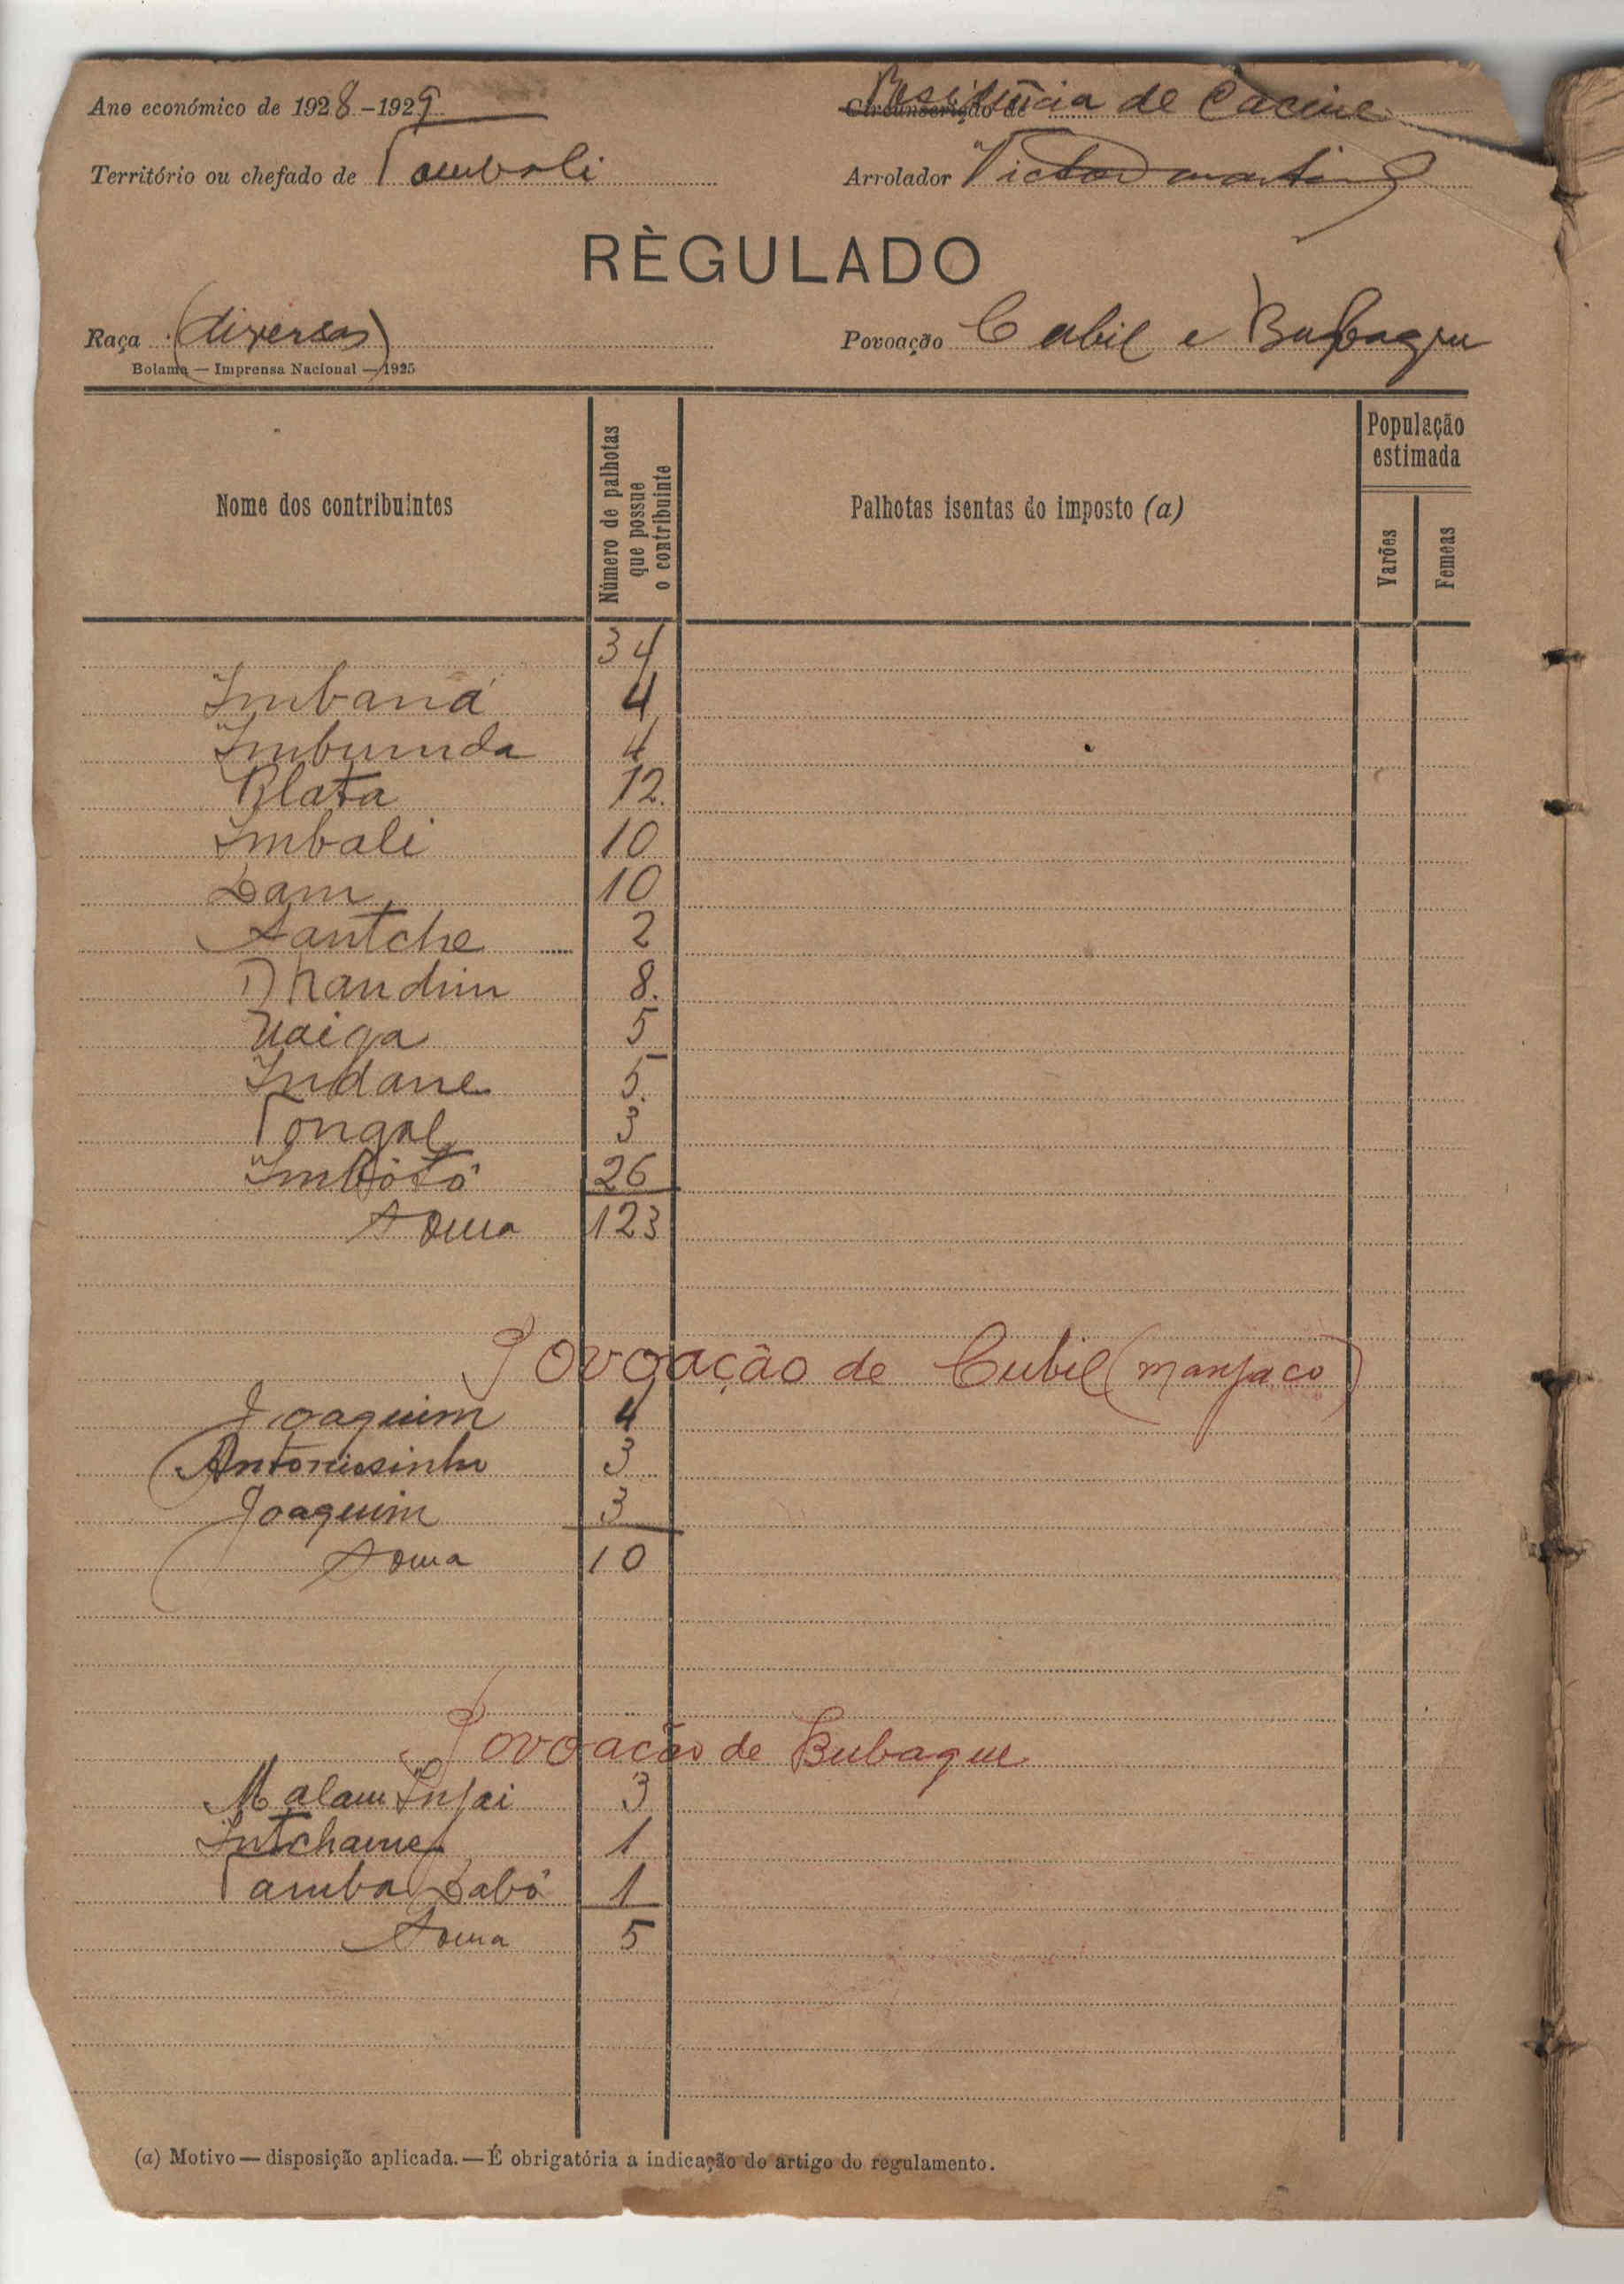 Ano económico de 1928-1929
Circunscrição de Residência de Cacine
Território ou chefado de Tombali
Arrolador Victor Martins
RÈGULADO
Raça (diversas)
Povoação Cabil e Bubaque
Bolama — Imprensa Nacional — 1925
Nome dos contribuintes
Número de palhotas
que possue
o contribuinte
Palhotas isentas do imposto (a)
População
estimada
Varões
Femeas
34
Imbaná 4
Imbunda 4
Blata 12
Imbali 10
Dam 10
Santche 2
Nandim 8
Uaiga 5
Indane 5
Tongal 3
Imbótó 26
Soma 123
Povoação de Cubil (manjaco)
Joaquim 4
Antoniosinho 3
Joaquim 3
Soma 10
Povoação de Bubaque
Malam Injai 3
Intchame 1
Tamba Dabó 1
Soma 5
(a) Motivo — disposição aplicada. — É obrigatória a indicação do artigo do regulamento.